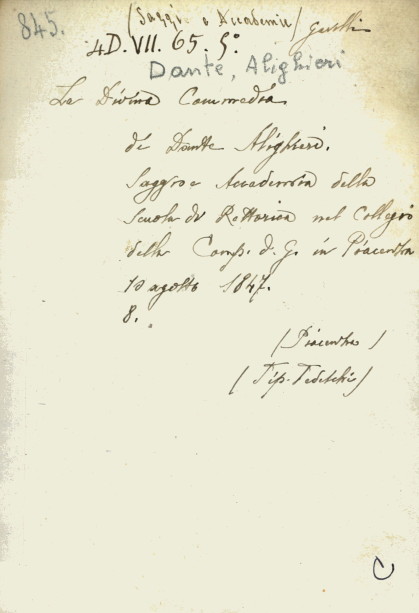 845.
(Saggi e Accademie) Gesuiti
4D. VII. 65. 5°
Dante, Alighieri
La Divina Commedia
di Dante Alighieri.
Saggio e Accademia della
Scuola di Rettorica nel Collegio
della Comp. d. G. in Piacenza
10 agosto 1847.
8.°
(Piacenza)
(Tip. Tedeschi)